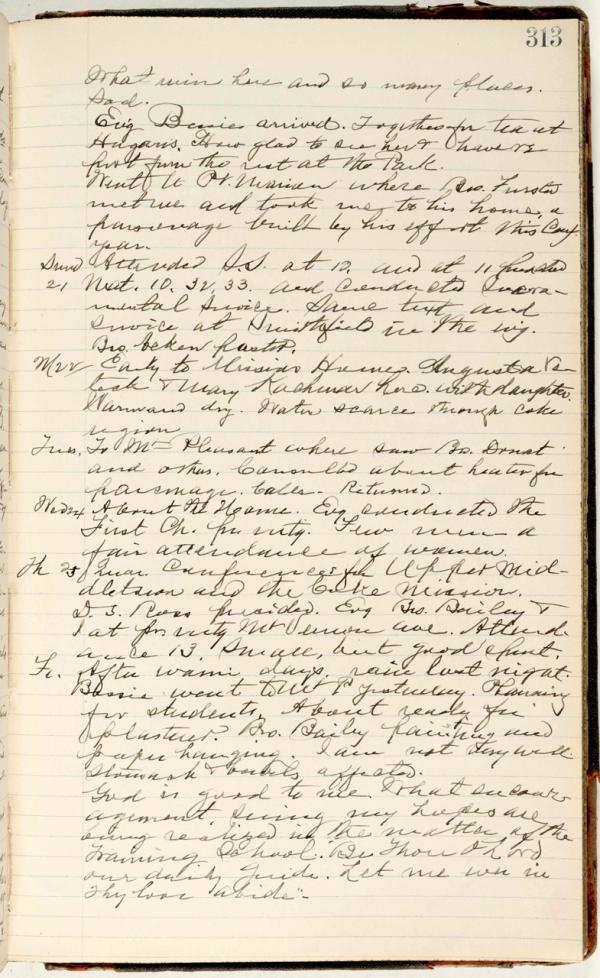 313
What ruin here and so many places.
Sad.
Ev'g Bessie arrived. Together for tea at
How glad to see her & have
from the rest at the Park.
Went to Pt. Marion where Bro.
met me and took me to his home, a
parsonage built by his effort this Conf.
year.
Sund Attended S.S. at 10. and at 11 preached
21 Mat. 10. 32, 33. and conducted Sacra-
mental Service. Same text and
service at Smithfield in the ev'g.
Bro. pastor.
M 22 Early to Mission Home. Augusta
& Mary here with daughter.
Warm and dry. Water scarce through Coke
region
Tues. To Mt Pleasant where saw Bro.
and others. Consulted about heater for
parsonage. Calls - Returned.
Wed 24 About the Home. Ev'g conducted the
First Ch. pr. mtg. Few men - a
fair attendance of women.
Th 25 Quar. Conferences for Upper Mid-
dletown and the Coke Mission.
D. S. Ross presided. Ev'g Bro. Bailey &
I at pr. mtg Mt Vernon ave. Attend-
ance 13. Small, but good spirit.
Fr. After warm days, rain last night.
Bessie went to Mt P. yesterday. Planning
for students. About ready for
plasterer. Bro. Bailey painting and
paper hanging. I am not very well
stomach & bowels affected.
God is good to me. What encour-
agement, seeing my hopes are
being realized in the matter of the
Training School. Be Thou O Lord
our daily Guide. Let me ever in
Thy love abide."